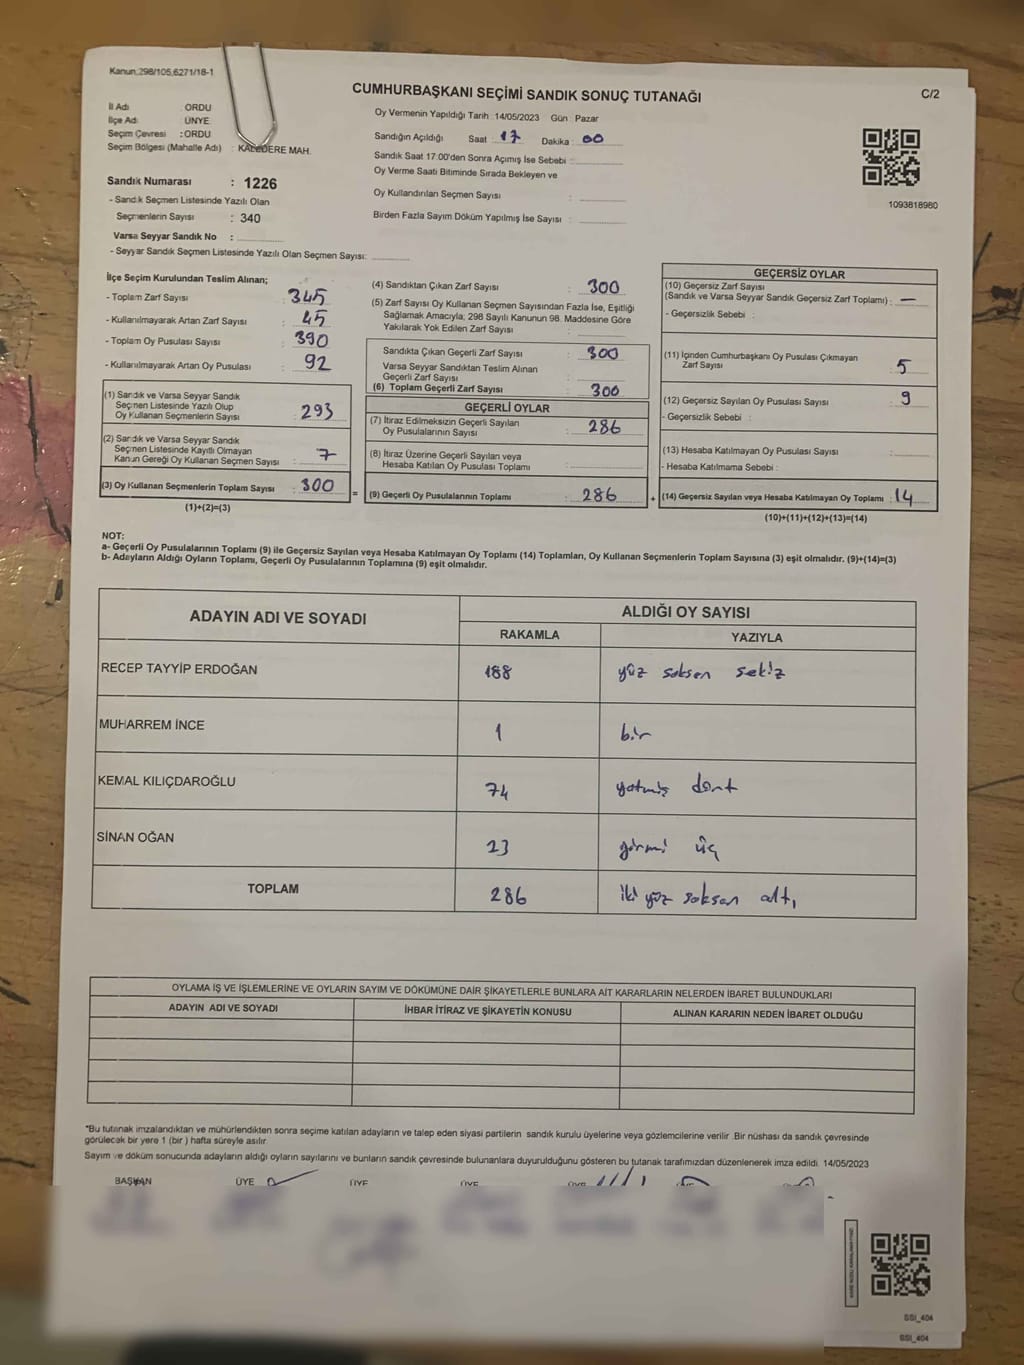 Kanun:298/105,6271/18-1
CUMHURBAŞKANI SEÇİMİ SANDIK SONUÇ TUTANAĞI
C/2
İl Adı : ORDU
İlçe Adı : ÜNYE
Seçim Çevresi : ORDU
Seçim Bölgesi (Mahalle Adı) : KALEDERE MAH.
Oy Vermenin Yapıldığı Tarih : 14/05/2023 Gün : Pazar
Sandığın Açıldığı Saat : 17 Dakika : 00
Sandık Saat 17.00'den Sonra Açılmış İse Sebebi :
Oy Verme Saati Bitiminde Sırada Bekleyen ve
Oy Kullandırılan Seçmen Sayısı :
Birden Fazla Sayım Döküm Yapılmış İse Sayısı :
1093818980
Sandık Numarası : 1226
- Sandık Seçmen Listesinde Yazılı Olan
Seçmenlerin Sayısı : 340
Varsa Seyyar Sandık No :
- Seyyar Sandık Seçmen Listesinde Yazılı Olan Seçmen Sayısı:
İlçe Seçim Kurulundan Teslim Alınan;
- Toplam Zarf Sayısı : 345
- Kullanılmayarak Artan Zarf Sayısı : 45
- Toplam Oy Pusulası Sayısı : 390
- Kullanılmayarak Artan Oy Pusulası : 92
(1) Sandık ve Varsa Seyyar Sandık
Seçmen Listesinde Yazılı Olup
Oy Kullanan Seçmenlerin Sayısı : 293
(2) Sandık ve Varsa Seyyar Sandık
Seçmen Listesinde Kayıtlı Olmayan
Kanun Gereği Oy Kullanan Seçmen Sayısı : 7
(3) Oy Kullanan Seçmenlerin Toplam Sayısı : 300
(1)+(2)=(3)
(4) Sandıktan Çıkan Zarf Sayısı : 300
(5) Zarf Sayısı Oy Kullanan Seçmen Sayısından Fazla İse, Eşitliği
Sağlamak Amacıyla; 298 Sayılı Kanunun 98. Maddesine Göre
Yakılarak Yok Edilen Zarf Sayısı :
Sandıkta Çıkan Geçerli Zarf Sayısı : 300
Varsa Seyyar Sandıktan Teslim Alınan
Geçerli Zarf Sayısı :
(6) Toplam Geçerli Zarf Sayısı : 300
GEÇERLİ OYLAR
(7) İtiraz Edilmeksizin Geçerli Sayılan
Oy Pusulalarının Sayısı : 286
(8) İtiraz Üzerine Geçerli Sayılan veya
Hesaba Katılan Oy Pusulası Toplamı :
= (9) Geçerli Oy Pusulalarının Toplamı : 286 +
GEÇERSİZ OYLAR
(10) Geçersiz Zarf Sayısı
(Sandık ve Varsa Seyyar Sandık Geçersiz Zarf Toplamı) : —
- Geçersizlik Sebebi :
(11) İçinden Cumhurbaşkanı Oy Pusulası Çıkmayan
Zarf Sayısı : 5
(12) Geçersiz Sayılan Oy Pusulası Sayısı : 9
- Geçersizlik Sebebi :
(13) Hesaba Katılmayan Oy Pusulası Sayısı :
- Hesaba Katılmama Sebebi :
(14) Geçersiz Sayılan veya Hesaba Katılmayan Oy Toplamı : 14
(10)+(11)+(12)+(13)=(14)
NOT:
a- Geçerli Oy Pusulalarının Toplamı (9) ile Geçersiz Sayılan veya Hesaba Katılmayan Oy Toplamı (14) Toplamları, Oy Kullanan Seçmenlerin Toplam Sayısına (3) eşit olmalıdır. (9)+(14)=(3)
b- Adayların Aldığı Oyların Toplamı, Geçerli Oy Pusulalarının Toplamına (9) eşit olmalıdır.
ADAYIN ADI VE SOYADI ALDIĞI OY SAYISI
RAKAMLA YAZIYLA
RECEP TAYYİP ERDOĞAN 188 yüz seksen sekiz
MUHARREM İNCE 1 bir
KEMAL KILIÇDAROĞLU 74 yetmiş dört
SİNAN OĞAN 23 yirmi üç
TOPLAM 286 iki yüz seksen altı
OYLAMA İŞ VE İŞLEMLERİNE VE OYLARIN SAYIM VE DÖKÜMÜNE DAİR ŞİKAYETLERLE BUNLARA AİT KARARLARIN NELERDEN İBARET BULUNDUKLARI
ADAYIN ADI VE SOYADI İHBAR İTİRAZ VE ŞİKAYETİN KONUSU ALINAN KARARIN NEDEN İBARET OLDUĞU
*Bu tutanak imzalandıktan ve mühürlendikten sonra seçime katılan adayların ve talep eden siyasi partilerin sandık kurulu üyelerine veya gözlemcilerine verilir. Bir nüshası da sandık çevresinde
görülecek bir yere 1 (bir ) hafta süreyle asılır.
Sayım ve döküm sonucunda adayların aldığı oyların sayılarını ve bunların sandık çevresinde bulunanlara duyurulduğunu gösteren bu tutanak tarafımızdan düzenlenerek imza edildi. 14/05/2023
BAŞKAN ÜYE ÜYE ÜYE ÜYE
SSI_404
SSI_404